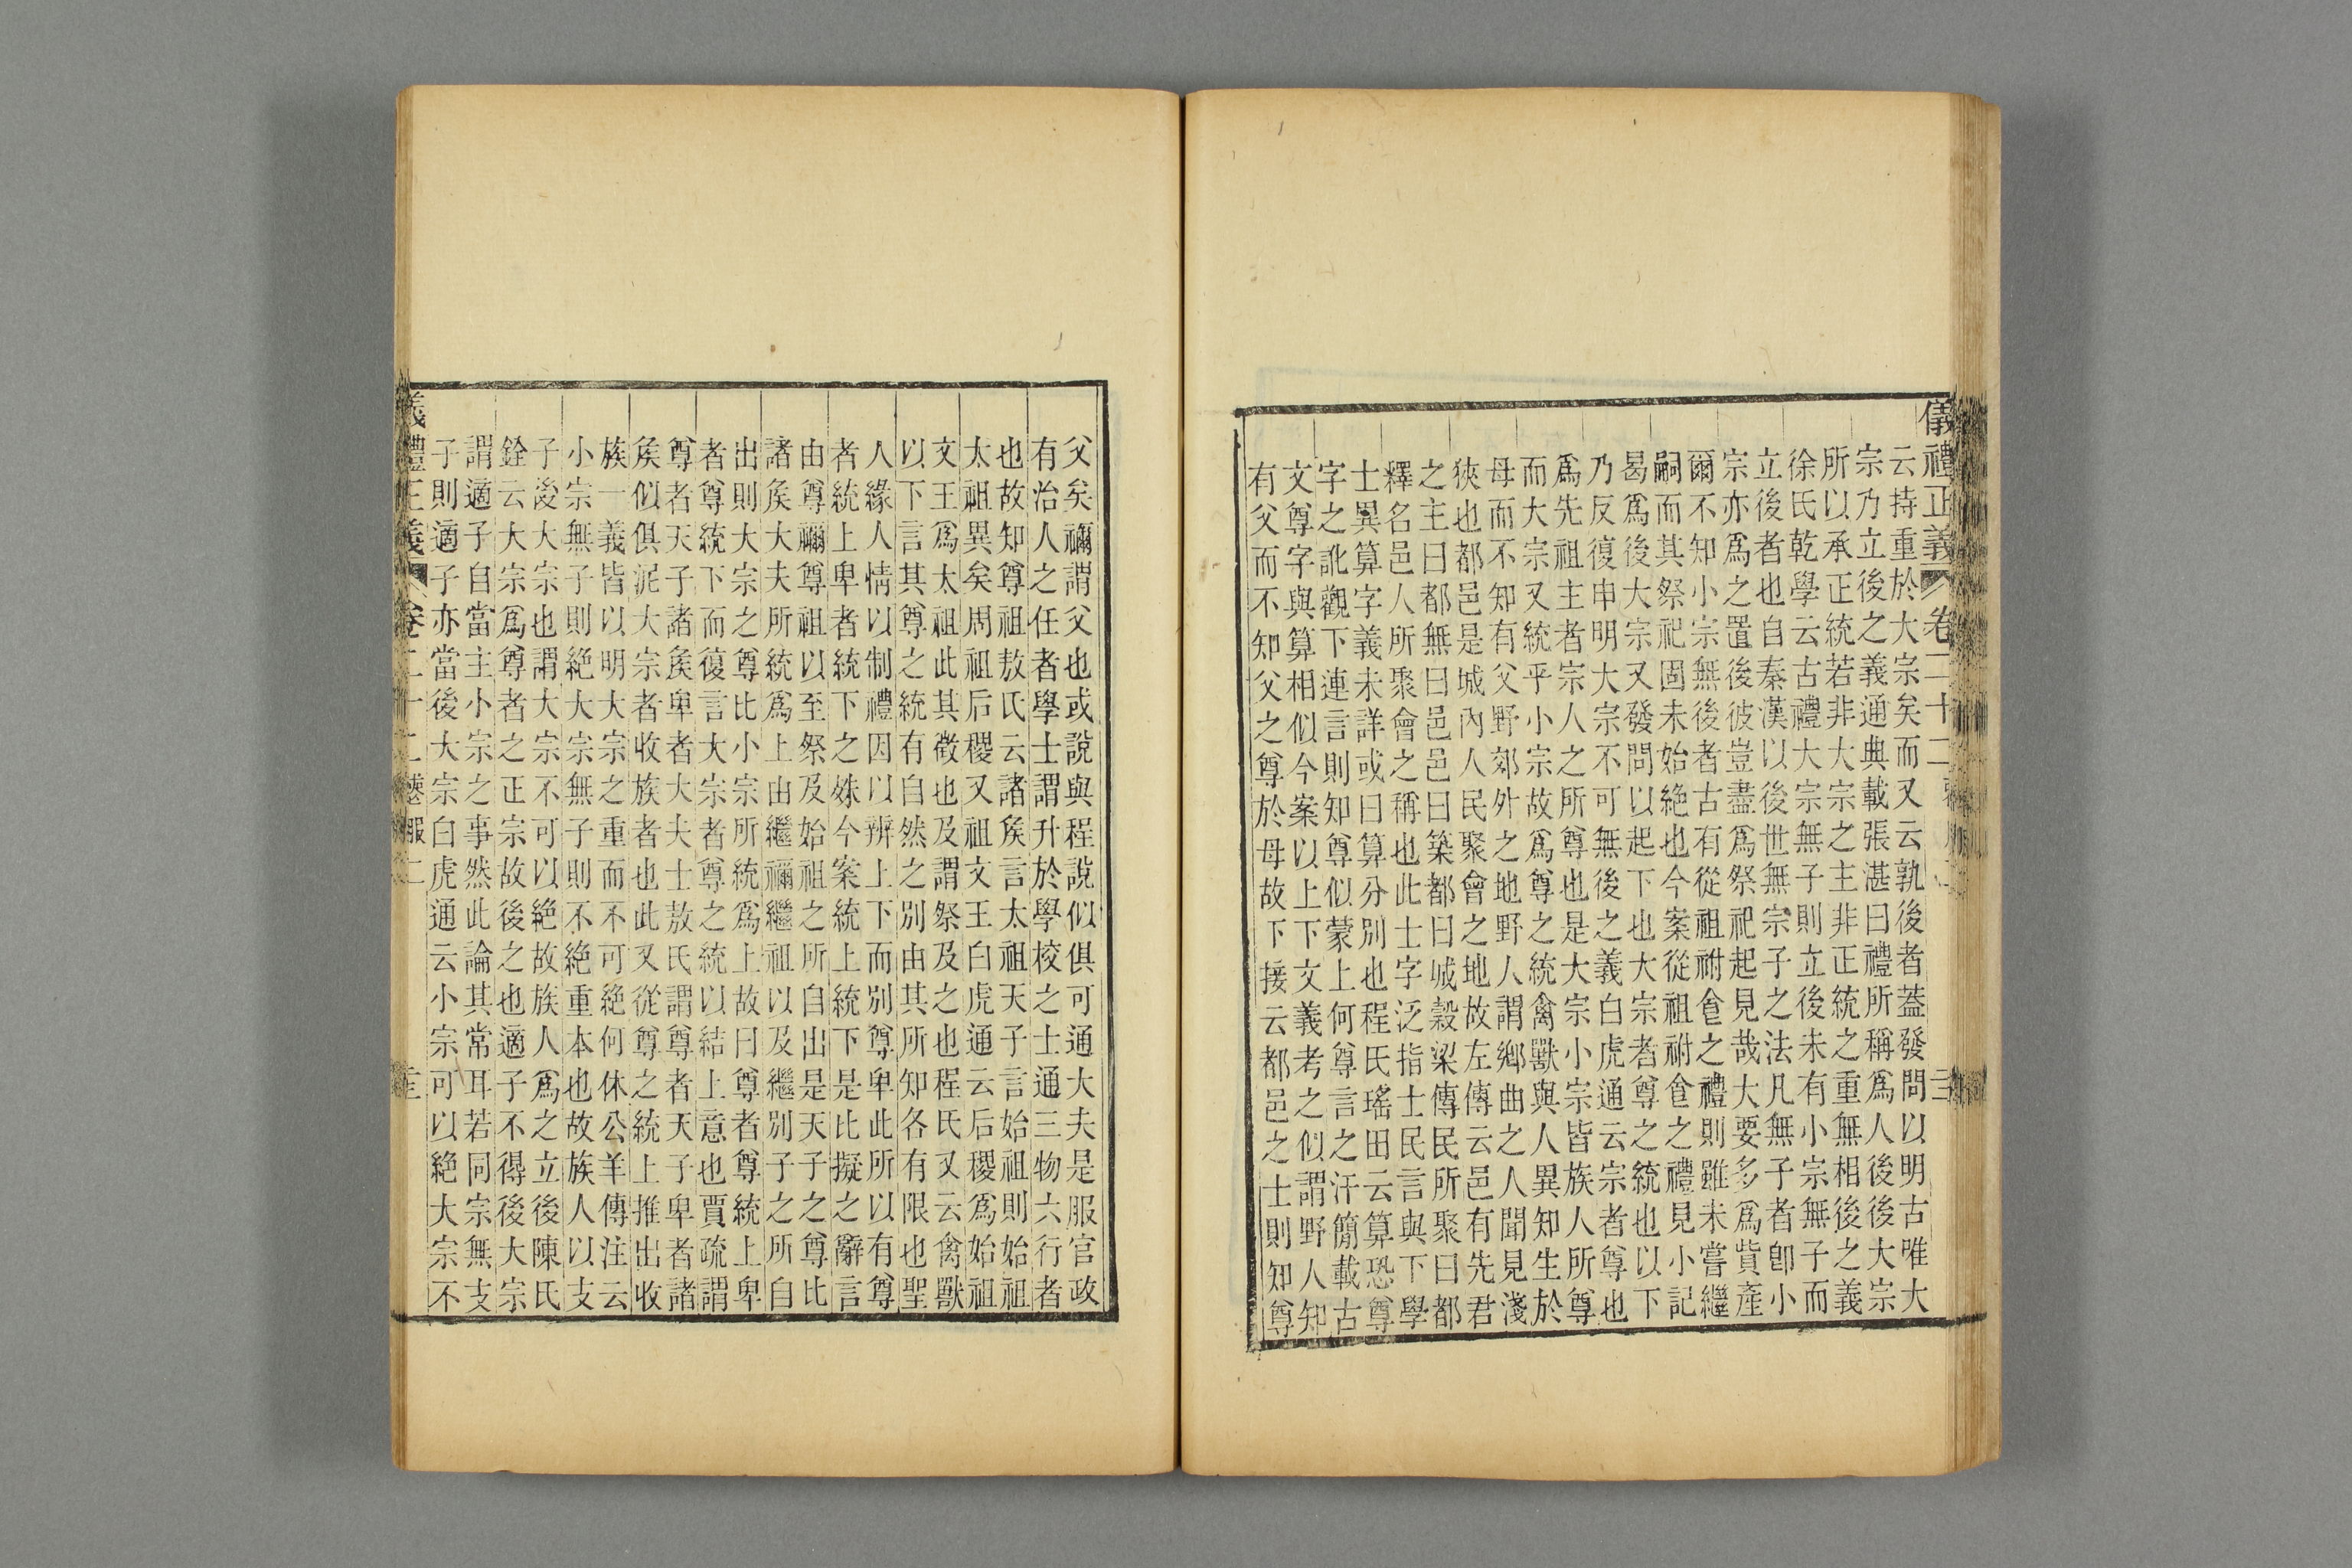 儀禮正義 卷二十二
云持重於大宗矣而又云孰後者蓋發問以明古唯大
宗乃立後之義通典載張湛曰禮所稱爲人後後大宗
所以承正統若非大宗之主非正統之重無相後之義
徐氏乾學云古禮大宗無子則立後未有小宗無子而
立後者也自秦漢以後世無宗子之法凡無子者卽小
宗亦爲之置後彼豈盡爲祭祀起見哉大要多爲貲產
爾不知小宗無後者古有從祖祔食之禮則雖未嘗繼
嗣而其祭祀固未始絶也今案從祖祔食之禮見小記
曷爲後大宗又發問以起下也大宗者尊之統也以下
乃反復申明大宗不可無後之義白虎通云宗者尊也
爲先祖主者宗人之所尊也是大宗小宗皆族人所尊
而大宗又統乎小宗故爲尊之統禽獸與人異知生於
母而不知有父野郊外之地野人謂鄉曲之人聞見淺
狹也都邑是城內人民聚會之地故左傳云邑有先君
之主曰都無曰邑邑曰築都曰城穀梁傳民所聚曰都
釋名邑人所聚會之稱也此士字泛指士民言與下學
士異算字義未詳或曰算分別也程氏瑤田云算恐尊
字之訛觀下連言則知尊似蒙上何尊言之汗簡載古
文尊字與算相似今案以上下文義考之似謂野人知
有父而不知父之尊於母故下接云都邑之士則知尊
父矣禰謂父也或說與程說似俱可通大夫是服官政
有治人之任者學士謂升於學校之士通三物六行者
也故知尊祖敖氏云諸矦言太祖天子言始祖則始祖
太祖異矣周祖后稷又祖文王白虎通云后稷爲始祖
文王爲太祖此其徵也及謂祭及之也程氏又云禽獸
以下言其尊之統有自然之別由其所知各有限也聖
人緣人情以制禮因以辨上下而別尊卑此所以有尊
者統上卑者統下之姝今案統上統下是比擬之辭言
由尊禰尊祖以至祭及始祖之所自出是天子之尊比
諸矦大夫所統爲上由繼禰繼祖以及繼別子之所自
出則大宗之尊比小宗所統爲上故曰尊者尊統上卑
者尊統下而復言大宗者尊之統以結上意也賈疏謂
尊者天子諸矦卑者大夫士敖氏謂尊者天子卑者諸
矦似俱泥大宗者收族者也此又從尊之統上推出收
族一義皆以明大宗之重而不可絶何休公羊傳注云
小宗無子則絶大宗無子則不絶重本也故族人以支
子後大宗也謂大宗不可以絶故族人爲之立後陳氏
銓云大宗爲尊者之正宗故後之也適子不得後大宗
謂適子自當主小宗之事然此論其常耳若同宗無支
子則適子亦當後大宗白虎通云小宗可以絶大宗不
禮正義 卷二十二 喪服二